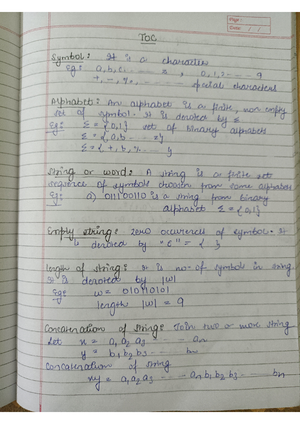 Page :
Date : / /
TOC
Symbol : It is a character
Eg : a, b, c, ---- z , 0, 1, 2 --- 9
+, -, *, ------ special characters
Alphabet : An alphabet is a finite, non empty
set of symbol. It is denoted by Σ
Eg : Σ = {0,1} set of binary alphabets
Σ = {a, b --- z}
Σ = {+, &, % --- }
String or word : A string is a finite set
sequence of symbols choosen from some alphabets
Eg : a) 011100110 is a string from binary
alphabet Σ = {0,1}
Empty string : zero occurences of symbol. It
is denoted by "ε" = { }
length of string : It is no. of symbols in string
It is denoted by |w|
Eg :
length |w| = 9
Concatenation of string : Join two or more string
Let x = a1 a2 a3 --- an
y = b1 b2 b3 --- bn
Concatenation of string
xy = a1 a2 a3 ---- an b1 b2 b3 --- bn